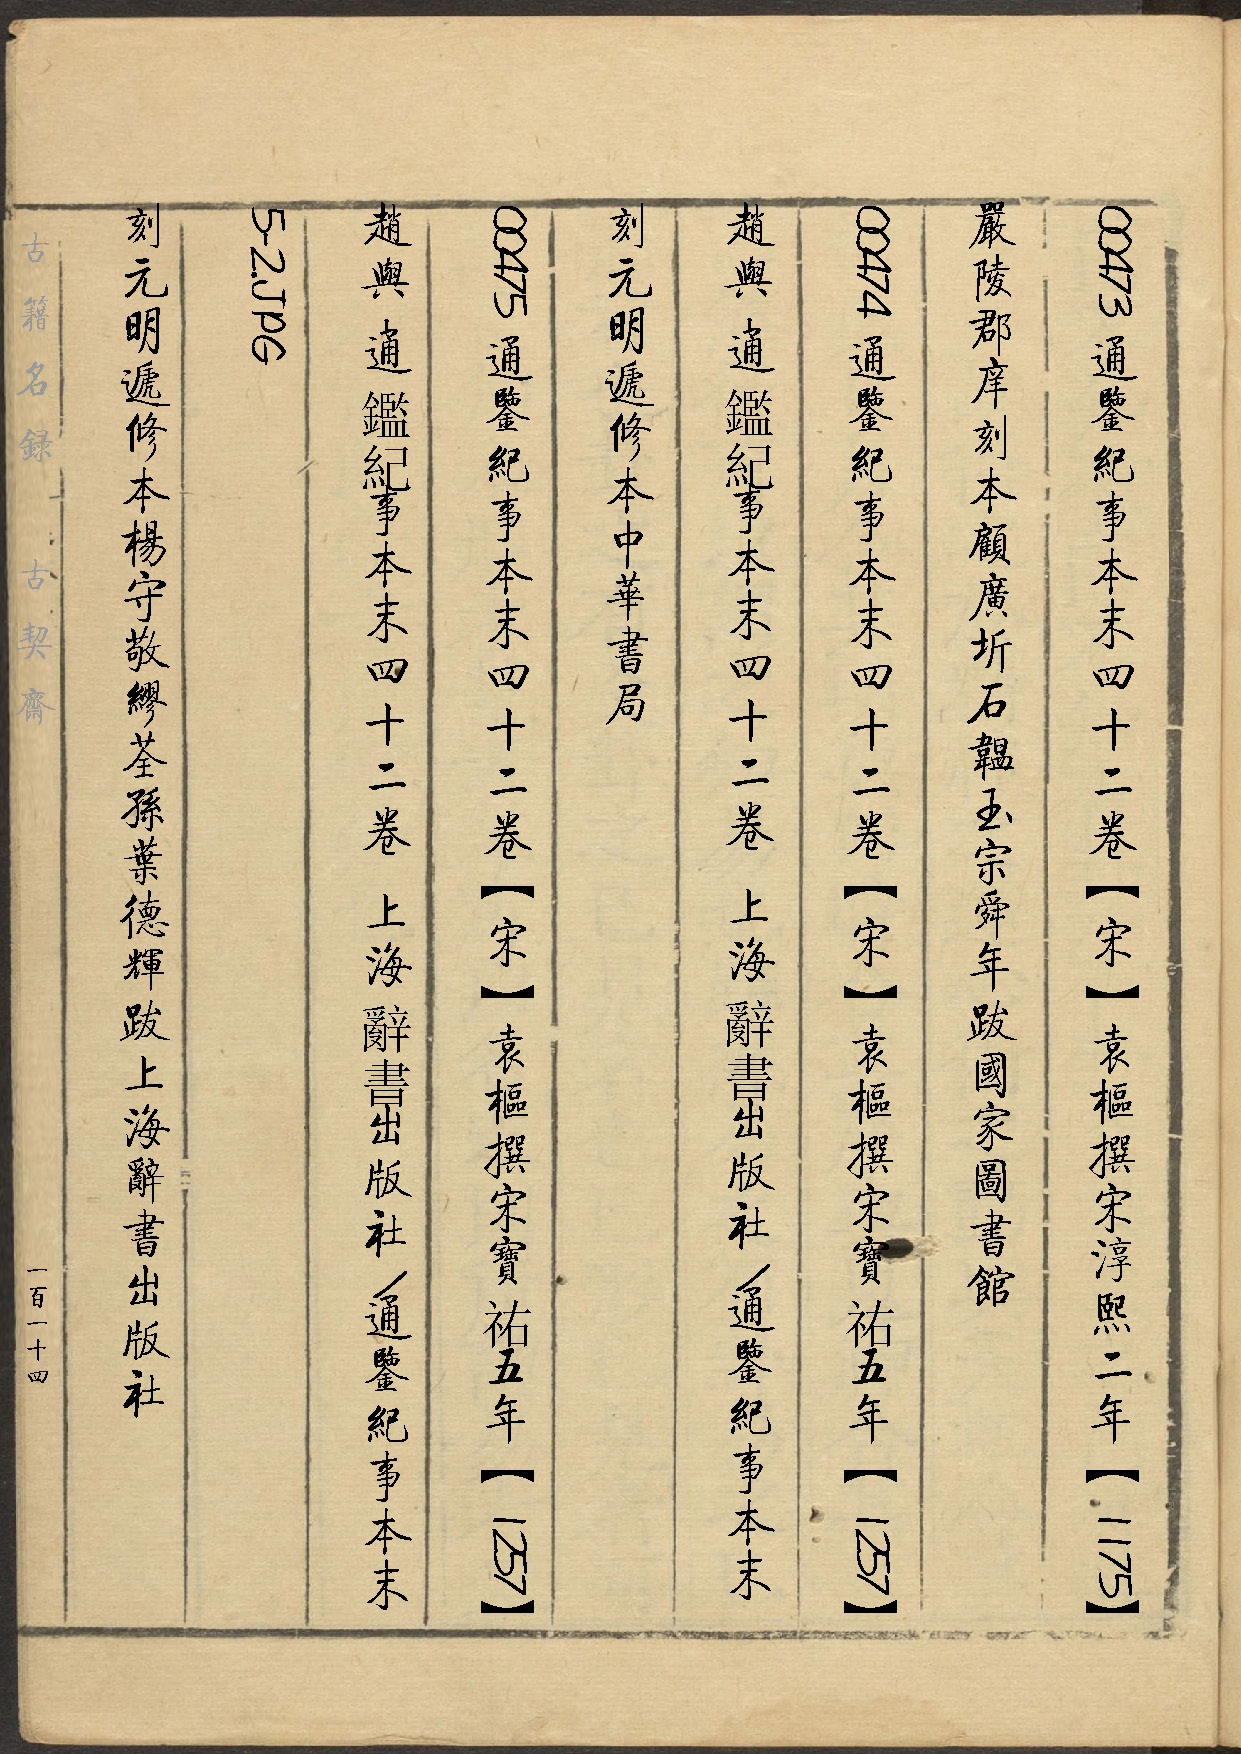 00473通鑒紀事本末四十二卷【宋】袁樞撰宋淳熙二年【1175】
嚴陵郡庠刻本顧廣圻石韞玉宗舜年跋國家圖書館
00474通鑒紀事本末四十二卷【宋】袁樞撰宋寶祐五年【1257】
趙與 通鑑紀事本末四十二卷 上海辭書出版社/通鑒紀事本末
刻元明遞修本中華書局
00475通鑒紀事本末四十二卷【宋】袁樞撰宋寶祐五年【1257】
趙與 通鑑紀事本末四十二卷 上海辭書出版社/通鑒紀事本末
5-2.JPG
刻元明遞修本楊守敬繆荃孫葉德輝跋上海辭書出版社
古籍名録 古契齋
一百一十四